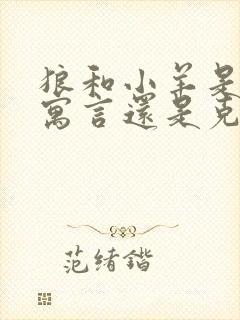 狼和小羊是
寓言還是克
范绪锴